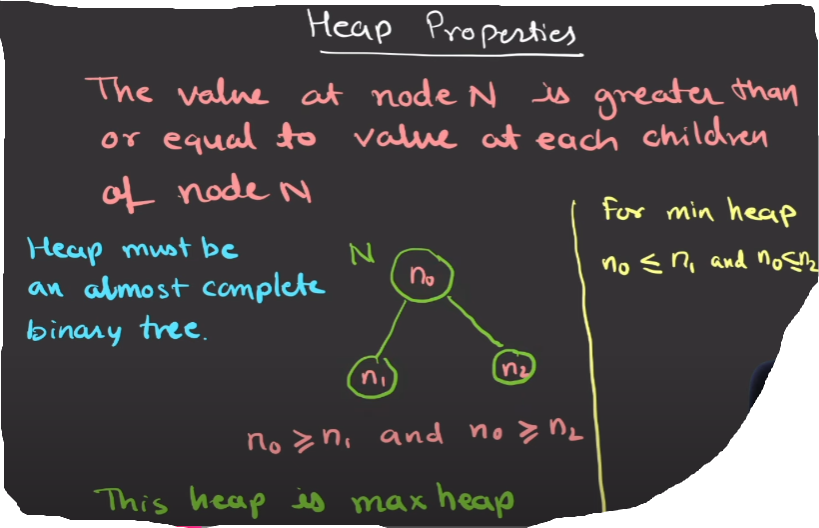 Heap Properties
The value at node N is greater than
or equal to value at each children
of node N
Heap must be
an almost complete
binary tree.
N
n₀
n₁
n₂
n₀ ⩾ n₁ and n₀ ⩾ n₂
This heap is max heap
For min heap
n₀ ≤ n₁ and n₀ ≤ n₂